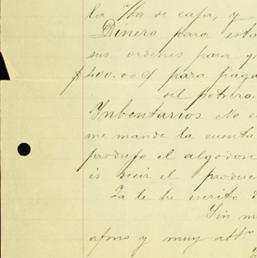 la Hda de cafe, y
Dinero para esta
sus ordenes para q
$400.00 para paga
del potrero.
Inbentarios. No e
me mande la cuenta
produjo el algodon
es decir el produc
Ya le he escrito
Sin m
afmo y muy atto